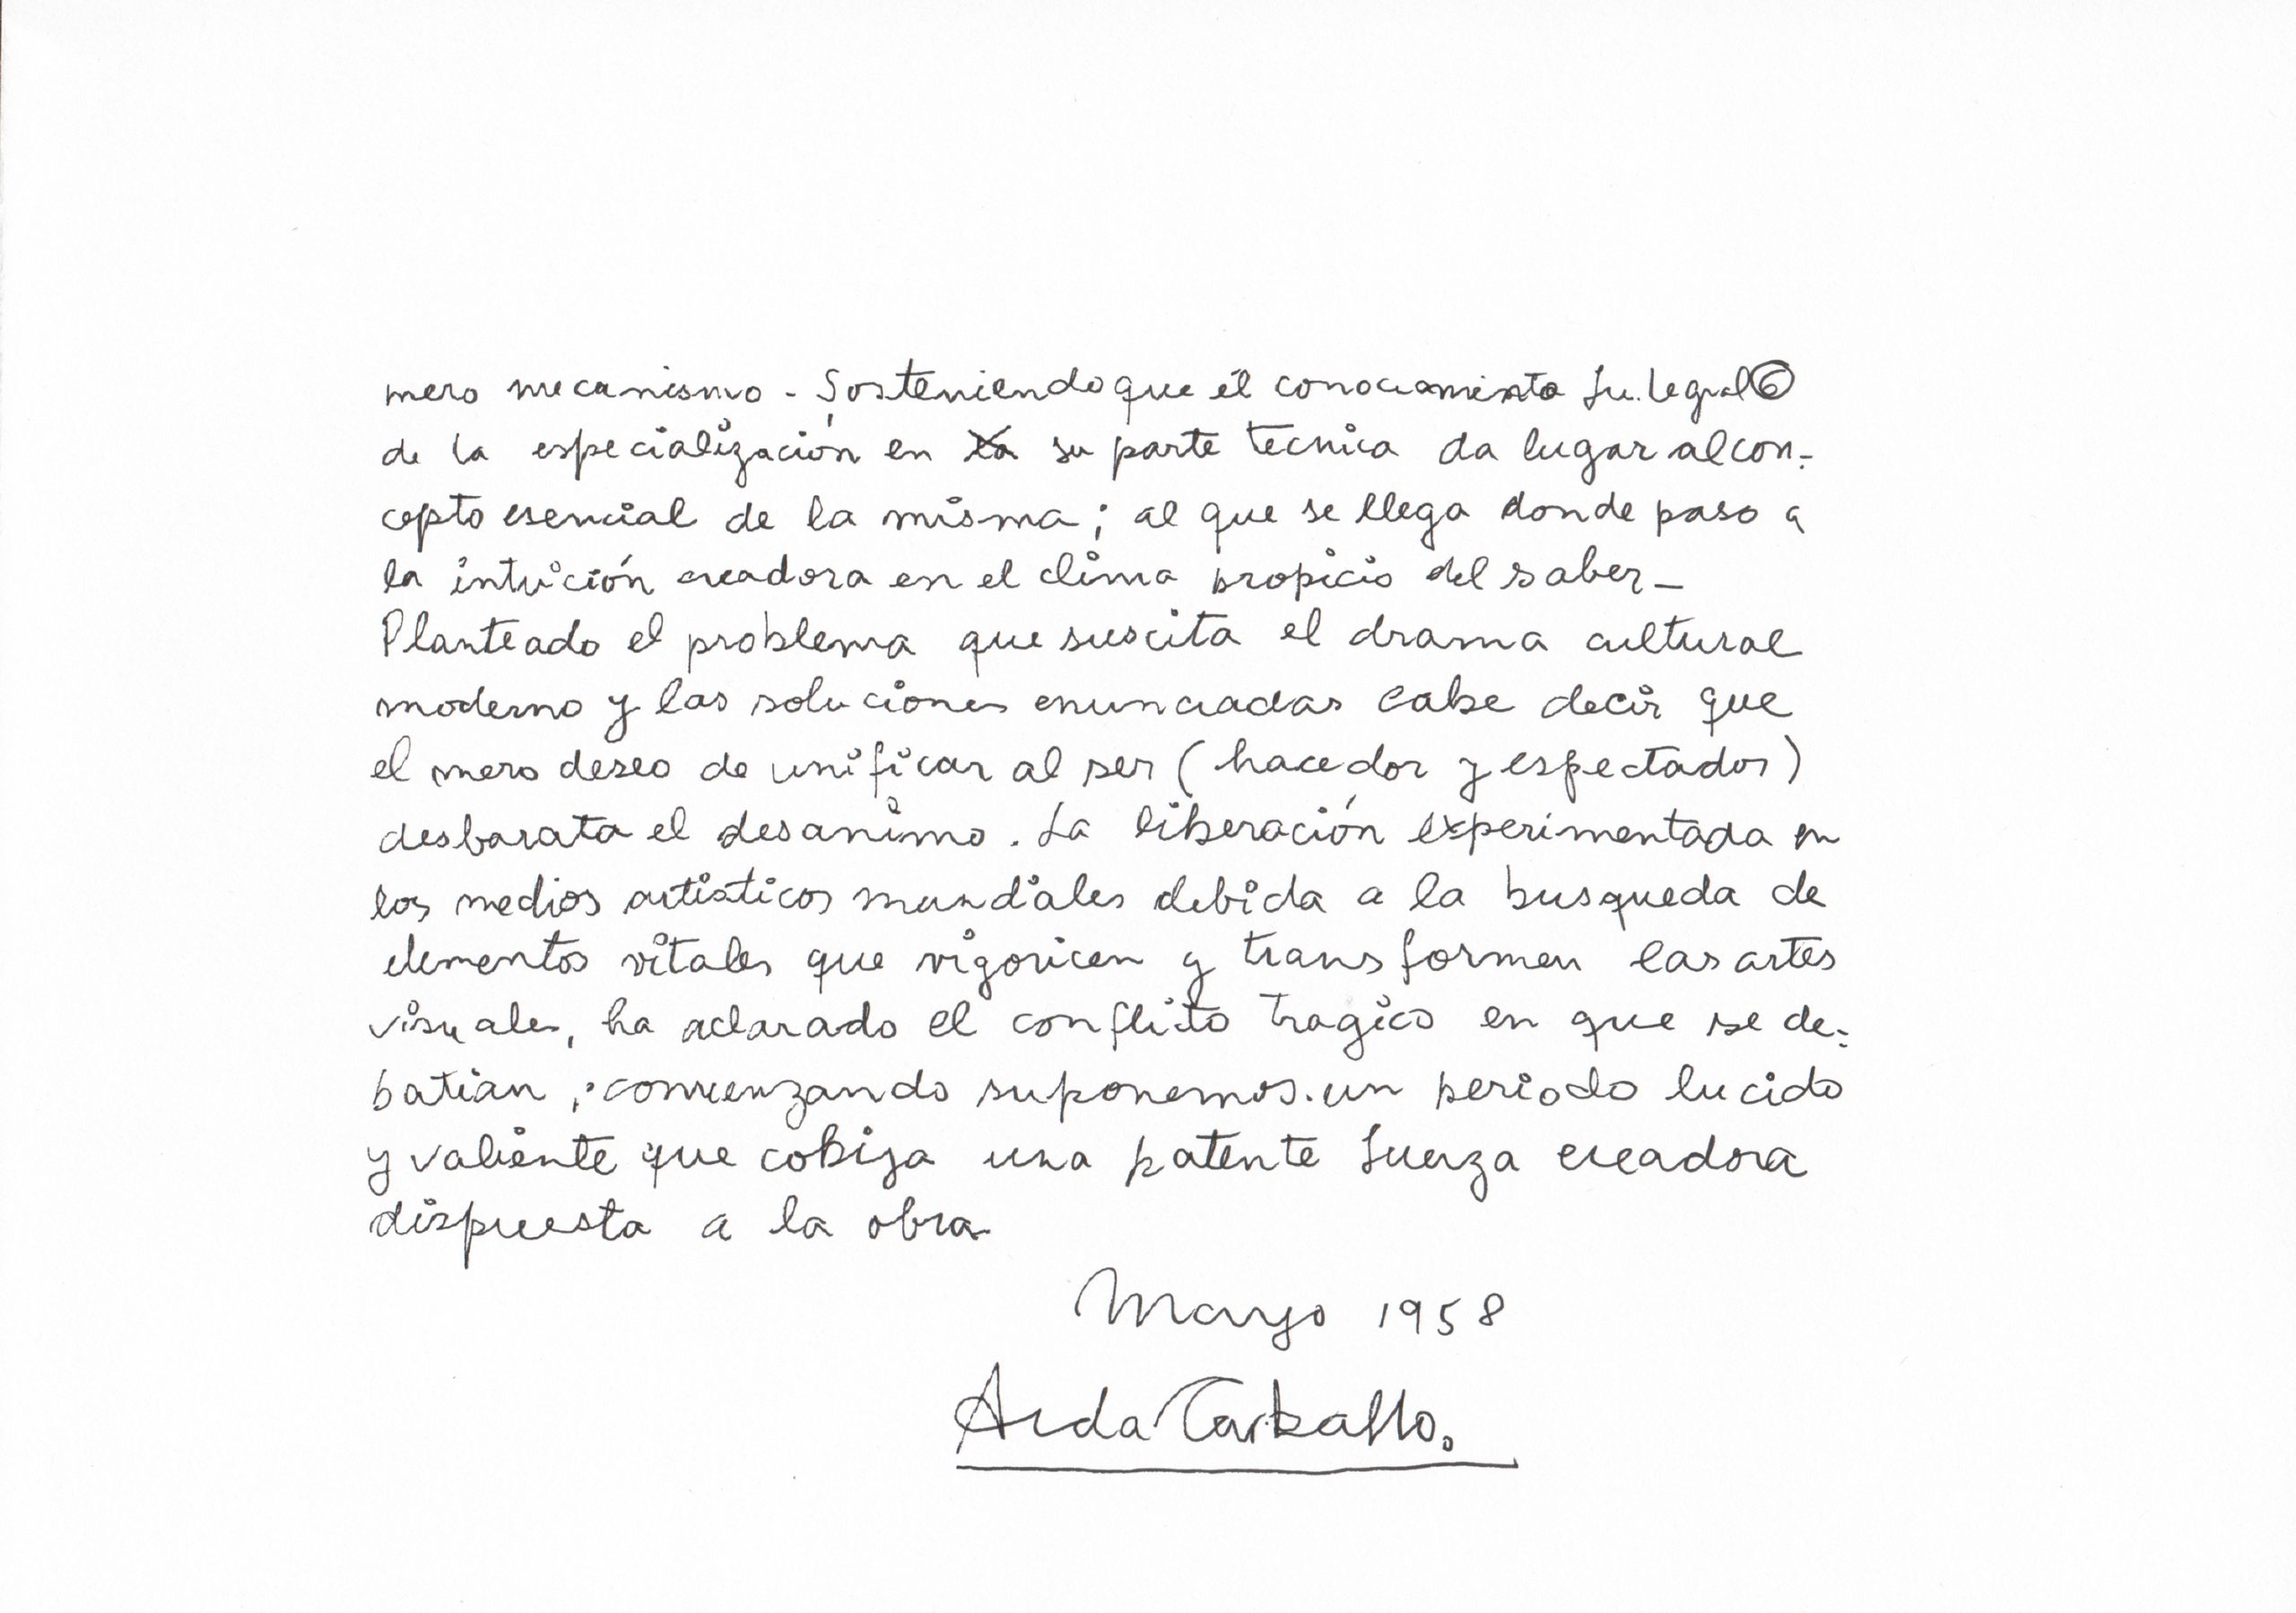 mero mecanismo - Sosteniendo que el conocimiento
de la especialización en la su parte tecnica da lugar al con-
cepto esencial de la misma; al que se llega donde paso a
la intuición creadora en el clima propicio del saber -
Planteado el problema que suscita el drama cultural
moderno y las soluciones enunciadas cabe decir que
el mero deseo de unificar al ser (hacedor y espectador)
desbarata el desanimo. La liberación experimentada en
los medios artisticos mundiales debida a la busqueda de
elementos vitales que vigoricen y transformen las artes
visuales, ha aclarado el conflicto tragico en que se de-
batian; comenzando suponemos. un periodo lucido
y valiente que cobija una patente fuerza creadora
dispuesta a la obra
Mayo 1958
Aida Carballo.